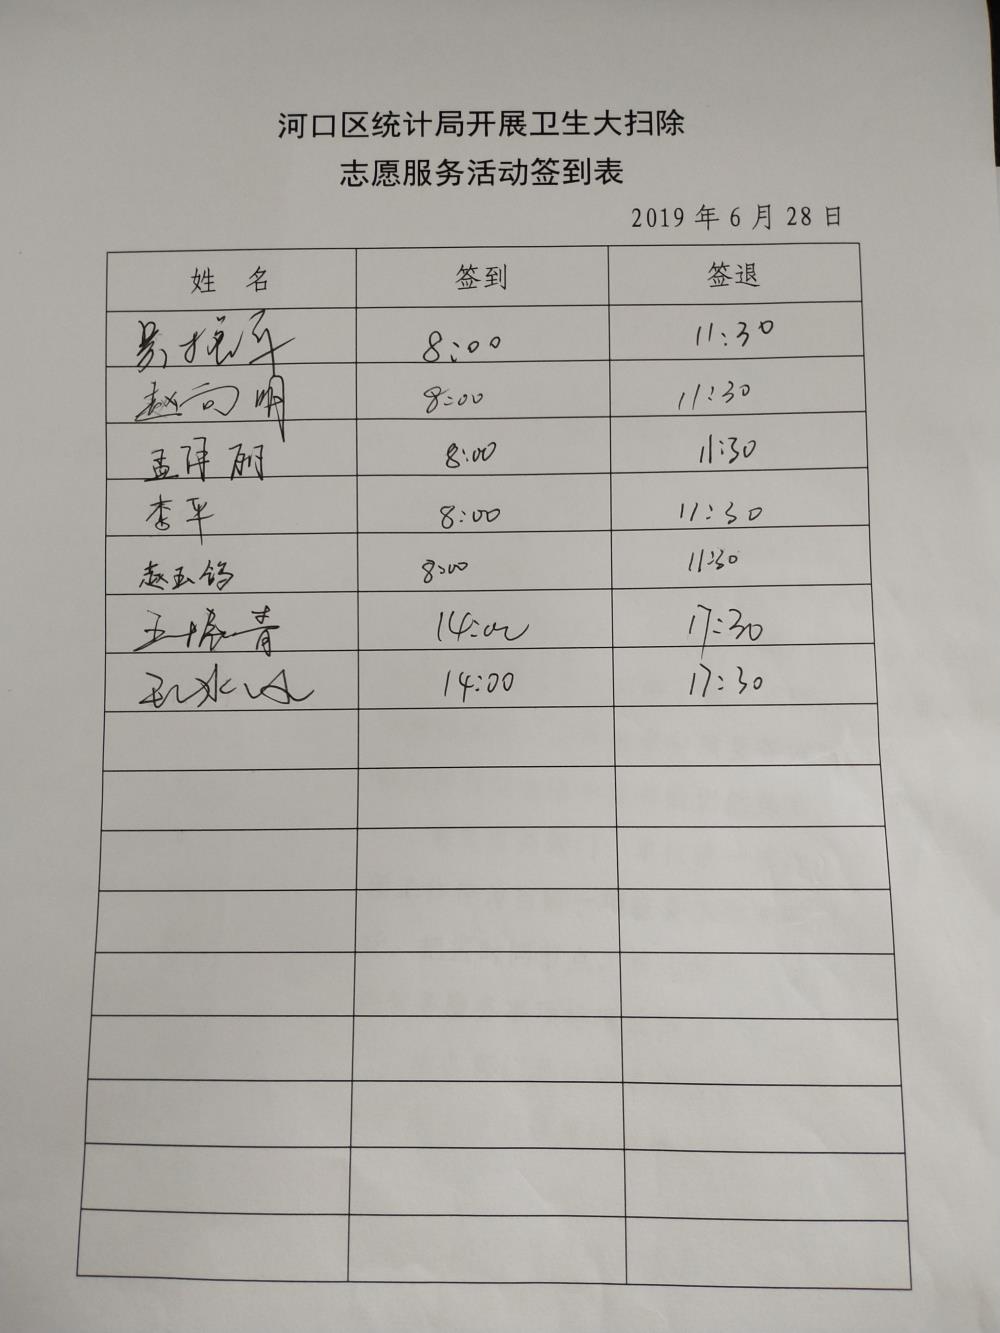 河口区统计局开展卫生大扫除
志愿服务活动签到表
2019 年 6 月 28 日
姓 名 签到 签退
8:00 11:30
赵向明 8:00 11:30
孟 丽 8:00 11:30
李平 8:00 11:30
赵玉 8:00 11:30
王振青 14:00 17:30
14:00 17:30